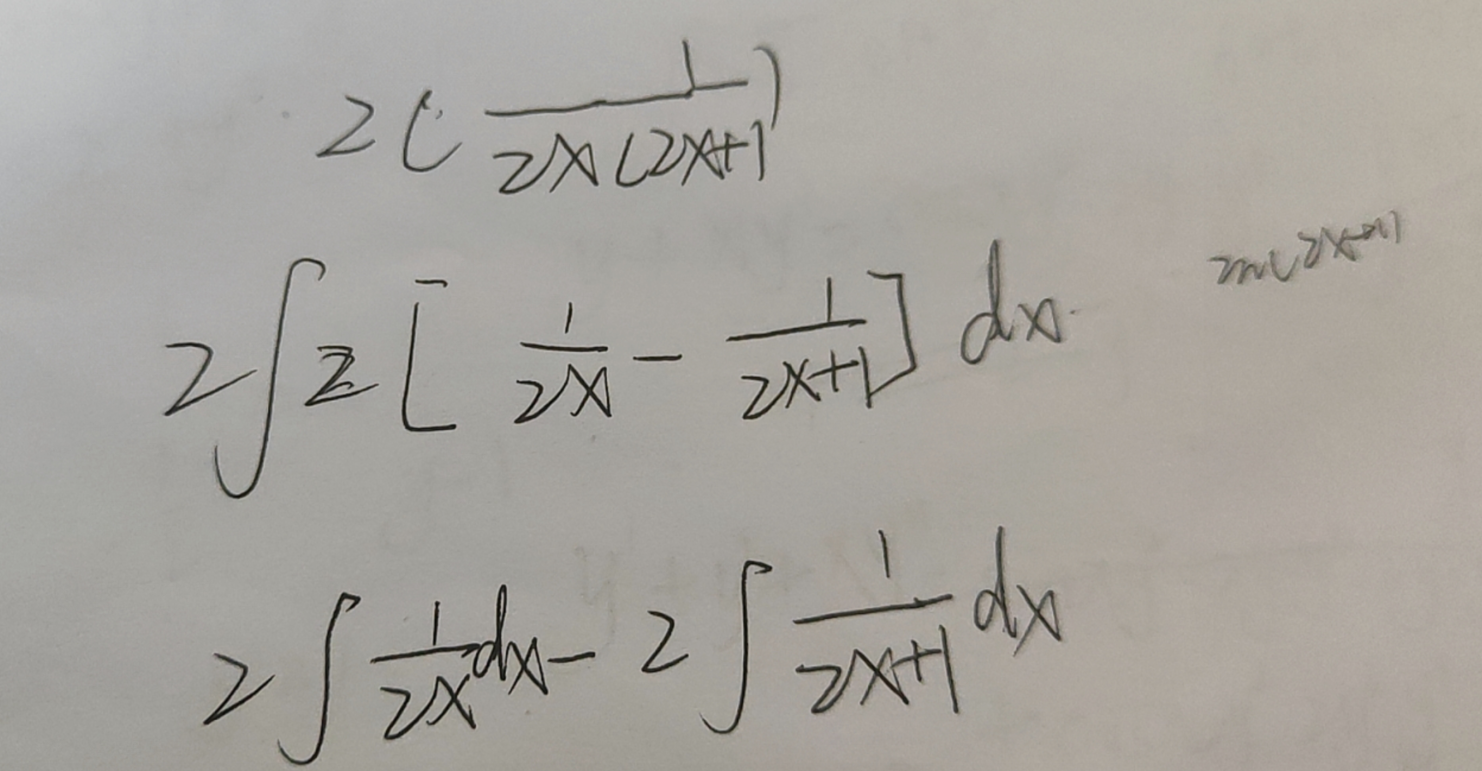 2(1/(2x(2x+1)
2∫2[1/(2x) - 1/(2x+1)] dx
2∫1/(2x) dx - 2∫1/(2x+1) dx